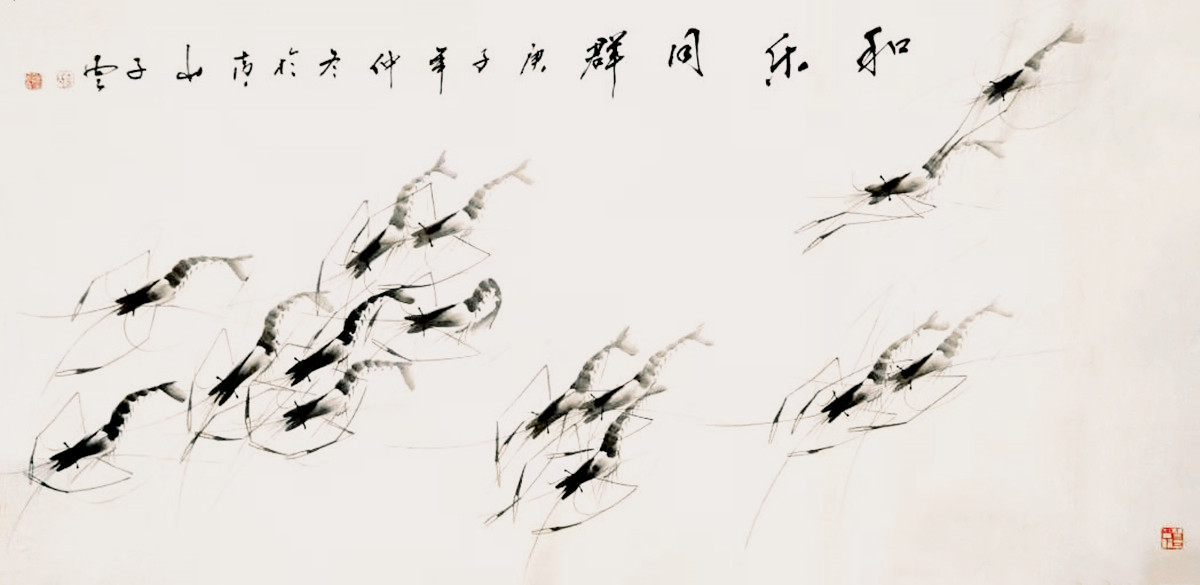 和乐同群 庚子年仲冬於南山子云